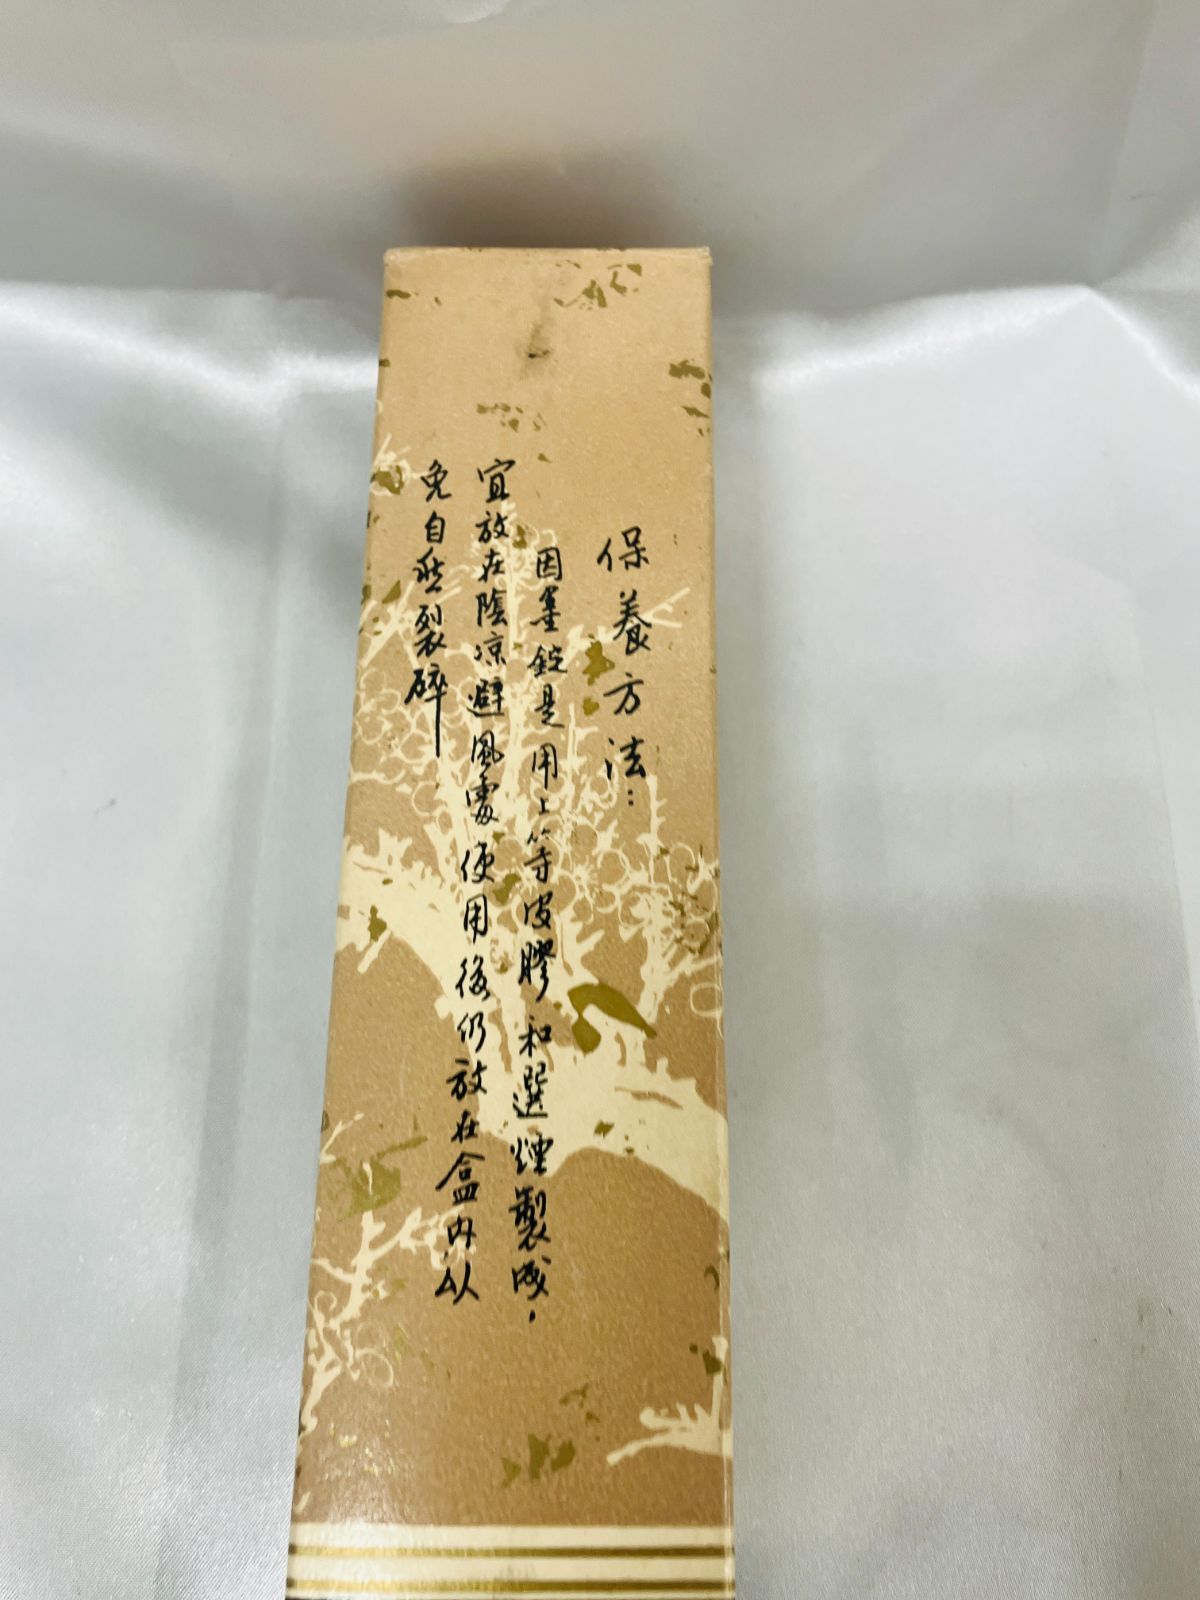 保養方法：
因墨錠是用上等皮膠和選煙製成，
宜放在陰凉避風處使用後仍放在盒内以
免自然裂碎